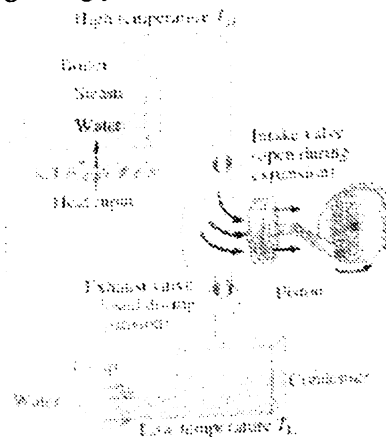 High temperature T_H
Boiler
Steam
Water
Heat input
Intake valve
(open during
expansion)
Exhaust valve
(closed during
expansion)
Piston
Pump
Water
Condenser
Low temperature T_L